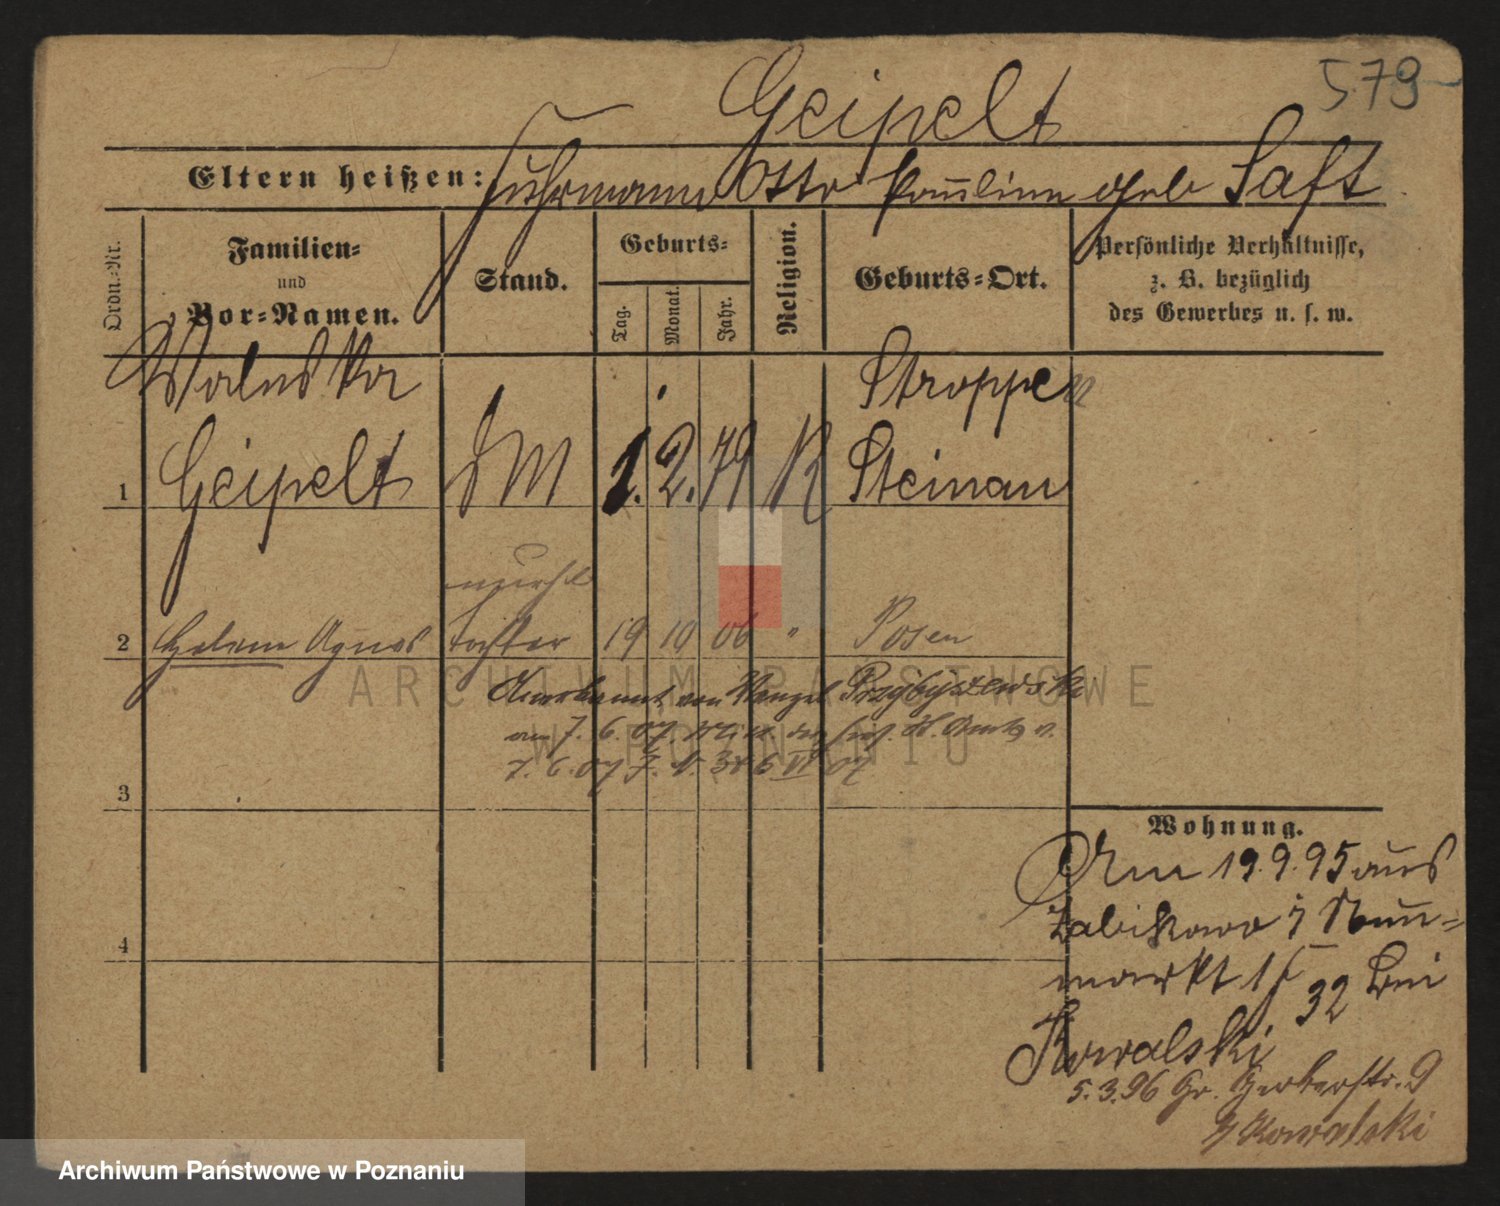 579
Geipelt
Eltern heißen: Fuhrmann Otto Pauline geb Saft
Ordn.-Nr.
Familien-
und
Vor-Namen.
Stand.
Geburts-
Tag.
Monat.
Jahr.
Religion.
Geburts-Ort.
Persönliche Verhältnisse,
z. B. bezüglich
des Gewerbes u. s. w.
Waleska Stroppen
1 Geipelt DM 1. 2. 79 K Steinau
unehl
2 Helene Agnes Tochter 19 10 06 " Posen
Anerkannt von Przybyszewski
7. 6. 07.
7. 6. 07 07
3
4
Wohnung.
Am 19.9.95 aus
Zabikowo Neu-
markt 32 bei
Kowalski
5.3.96 Gr. Gerberstr. 9
Kowalski
ARCHIWUM PAŃSTWOWE
W POZNANIU
Archiwum Państwowe w Poznaniu